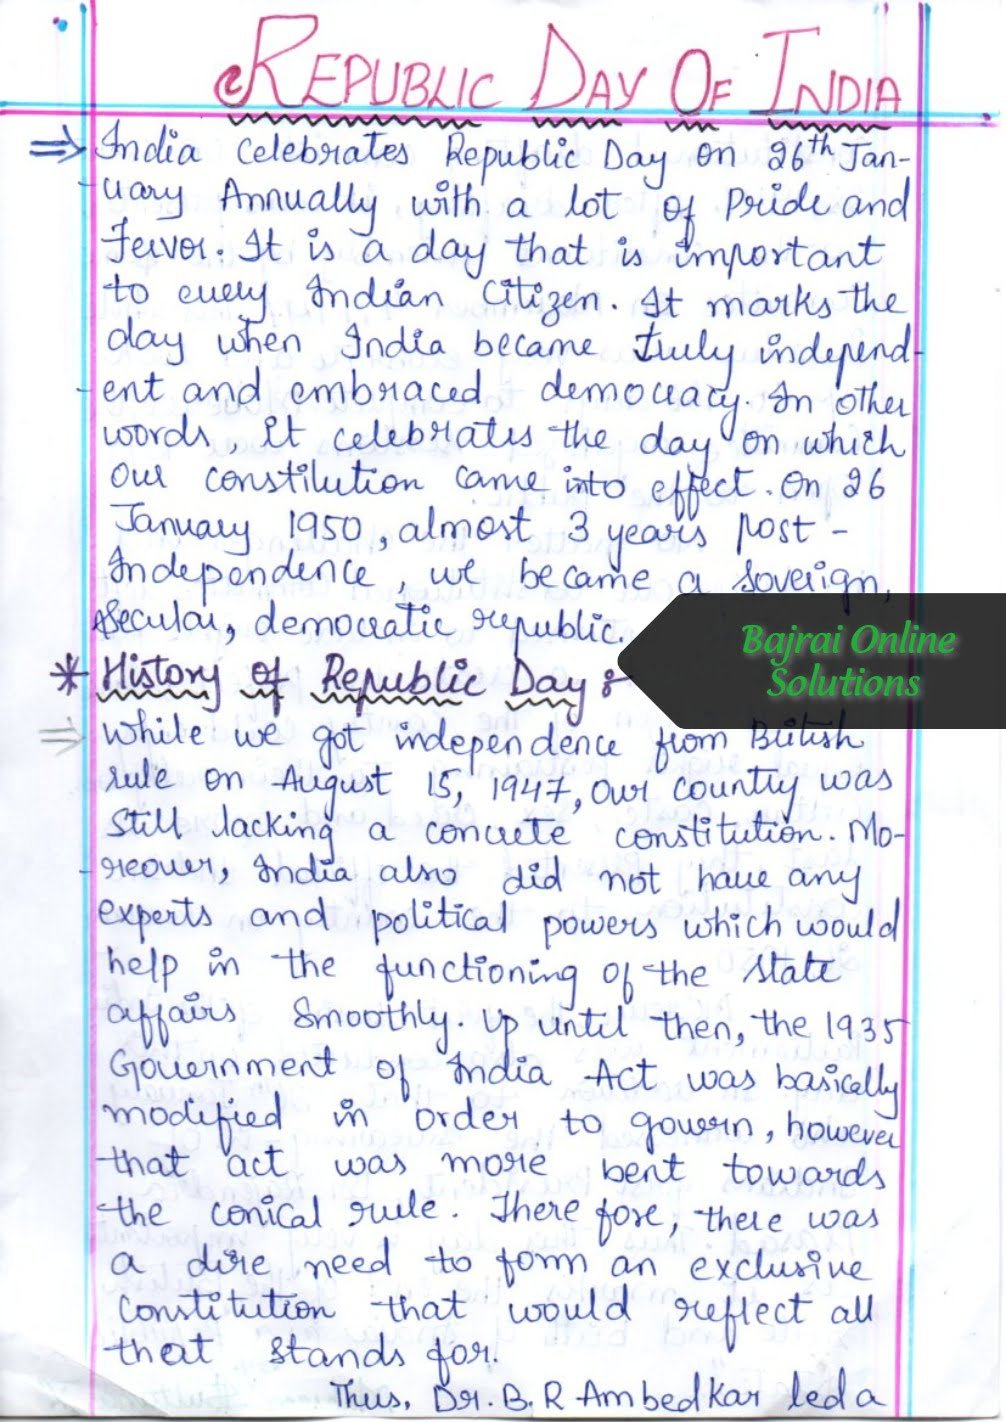 REPUBLIC DAY OF INDIA
⇒ India celebrates Republic Day on 26th Jan-
uary Annually with a lot of Pride and
Fervor. It is a day that is important
to every Indian Citizen. It marks the
day when India became truly independ-
ent and embraced democracy. In other
words, it celebrates the day on which
our constitution came into effect. On 26
January 1950, almost 3 years post -
Independence, we became a soverign,
secular, democratic republic
* History of Republic Day :-
⇒ While we got independence from British
rule on August 15, 1947, our country was
still lacking a concrete constitution. Mo-
reover, India also did not have any
experts and political powers which would
help in the functioning of the state
affairs smoothly. Up until then, the 1935
Government of India Act was basically
modified in order to govern, however
that act was more bent towards
the conical rule. There fore, there was
a dire need to form an exclusive
constitution that would reflect all
that stands for.
Thus, Dr. B. R Ambedkar led a
Bajrai Online
Solutions